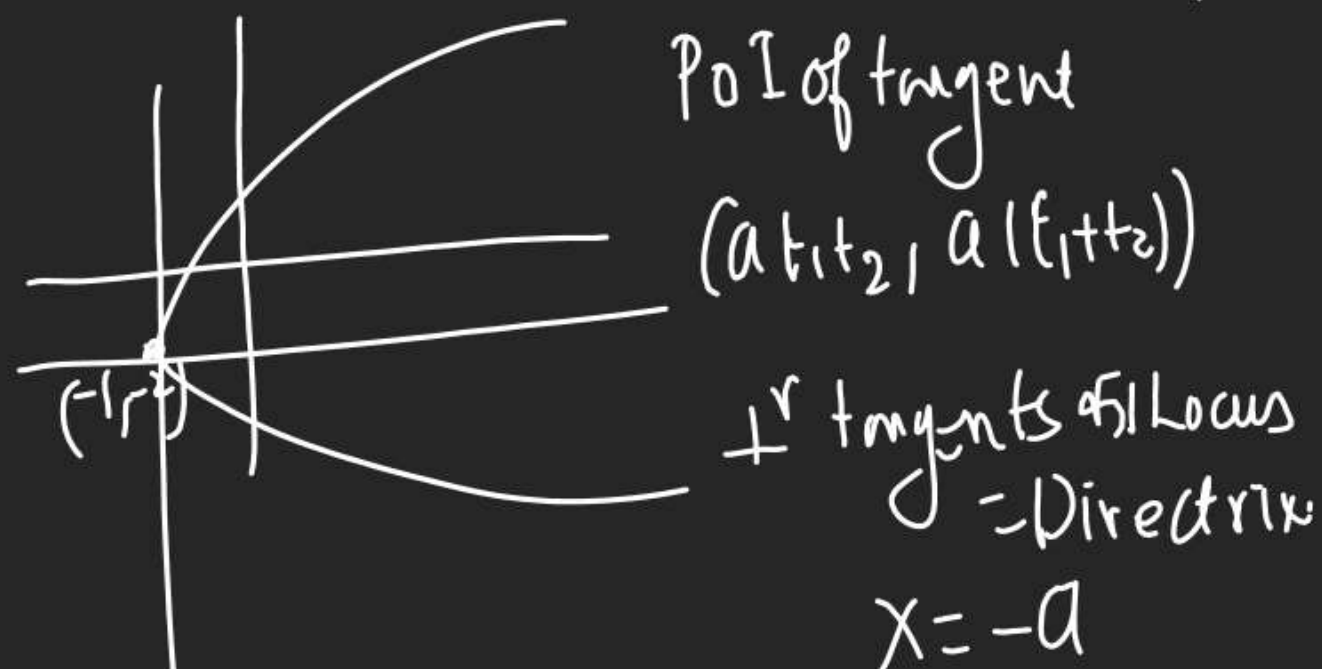 PoI of tangent
(at₁t₂, a(t₁+t₂))
(-1,-2)
⊥ʳ tangents का Locus
=Directrix
x=-a